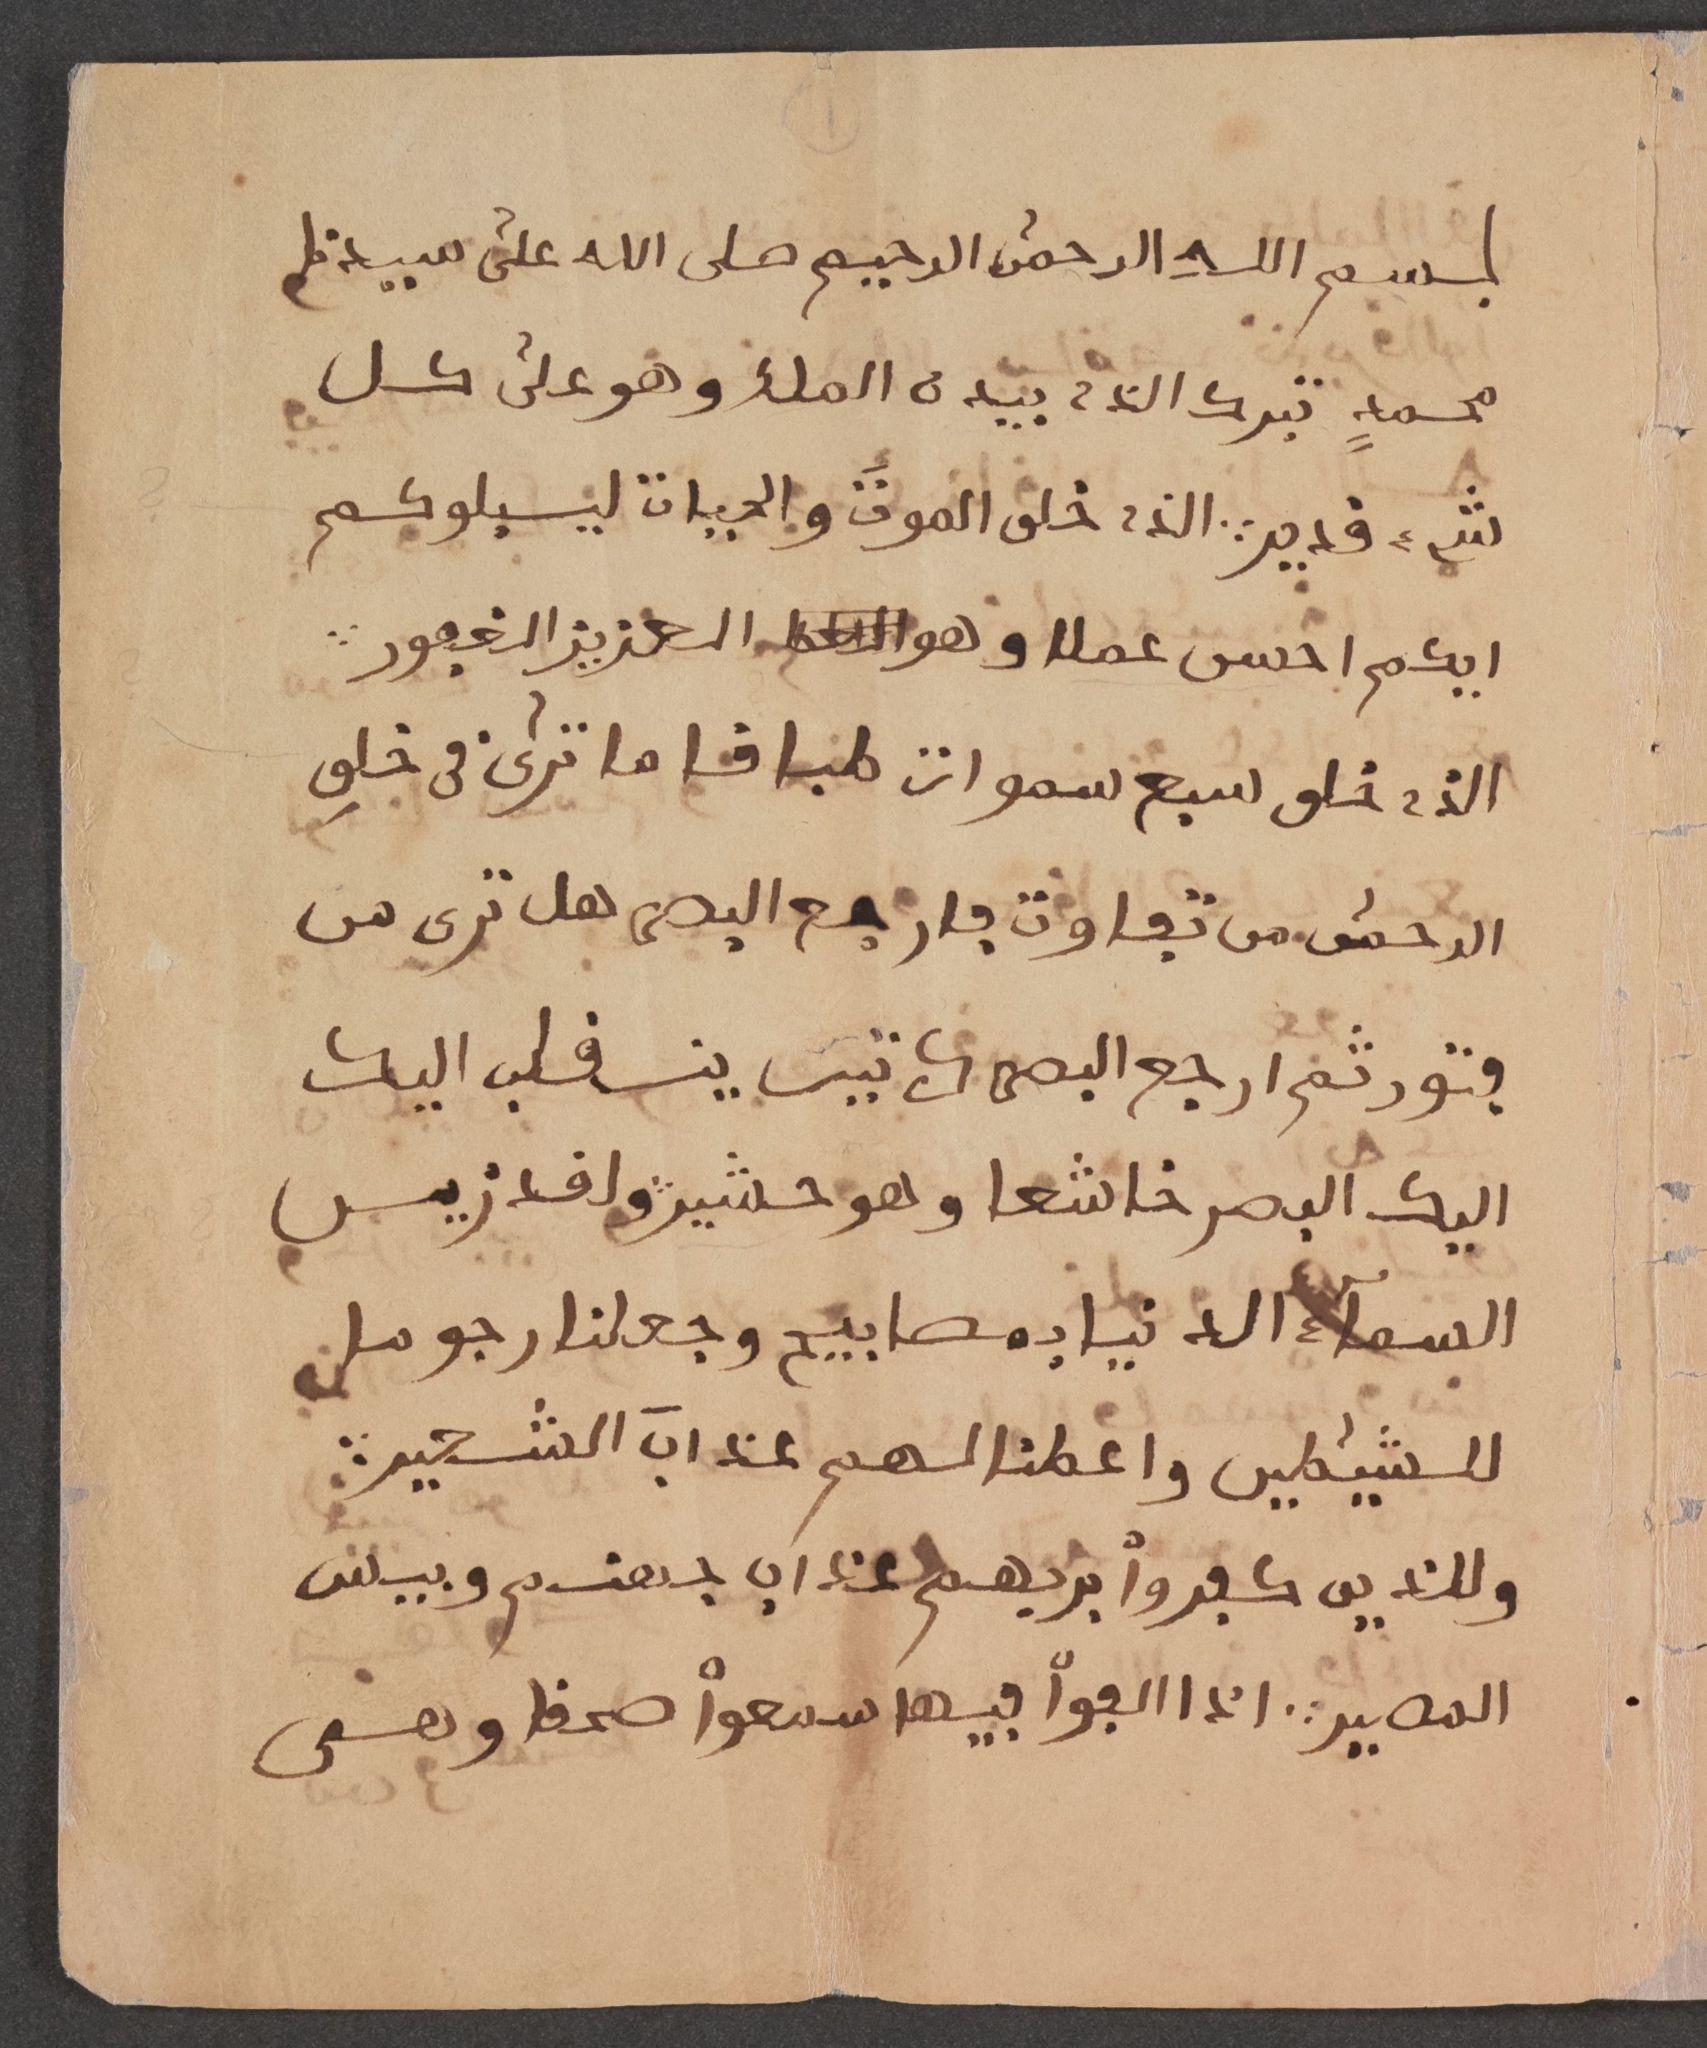 بسم الله الرحمن الرحيم صلى الله على سيدنا
محمدٍ تبرك الذي بيده الملك وهو على كل
شيء قدير الذي خلق الموتَ والحيات ليسبلوكم
ايكم احسن عملا وهو العزيز الغفور
الذي خلق سبع سموات طباقا ما ترى في خلقِ
الرحمن من تفاوت فارجع البصر هل ترى من
فتور ثم ارجع البصر كرتين ينسقلب اليك
اليك البصر خاشعا وهو حشير ولقد زين
السمآء الدنيا بمصابيح وجعلنا رجوما
للشيطين واعطنا لهم عذابَ الشعير
وللذين كفرواْ بربهم عذاب جهنم وبيس
المصير اذا القواْ فيها سمعواْ صحقا وهي